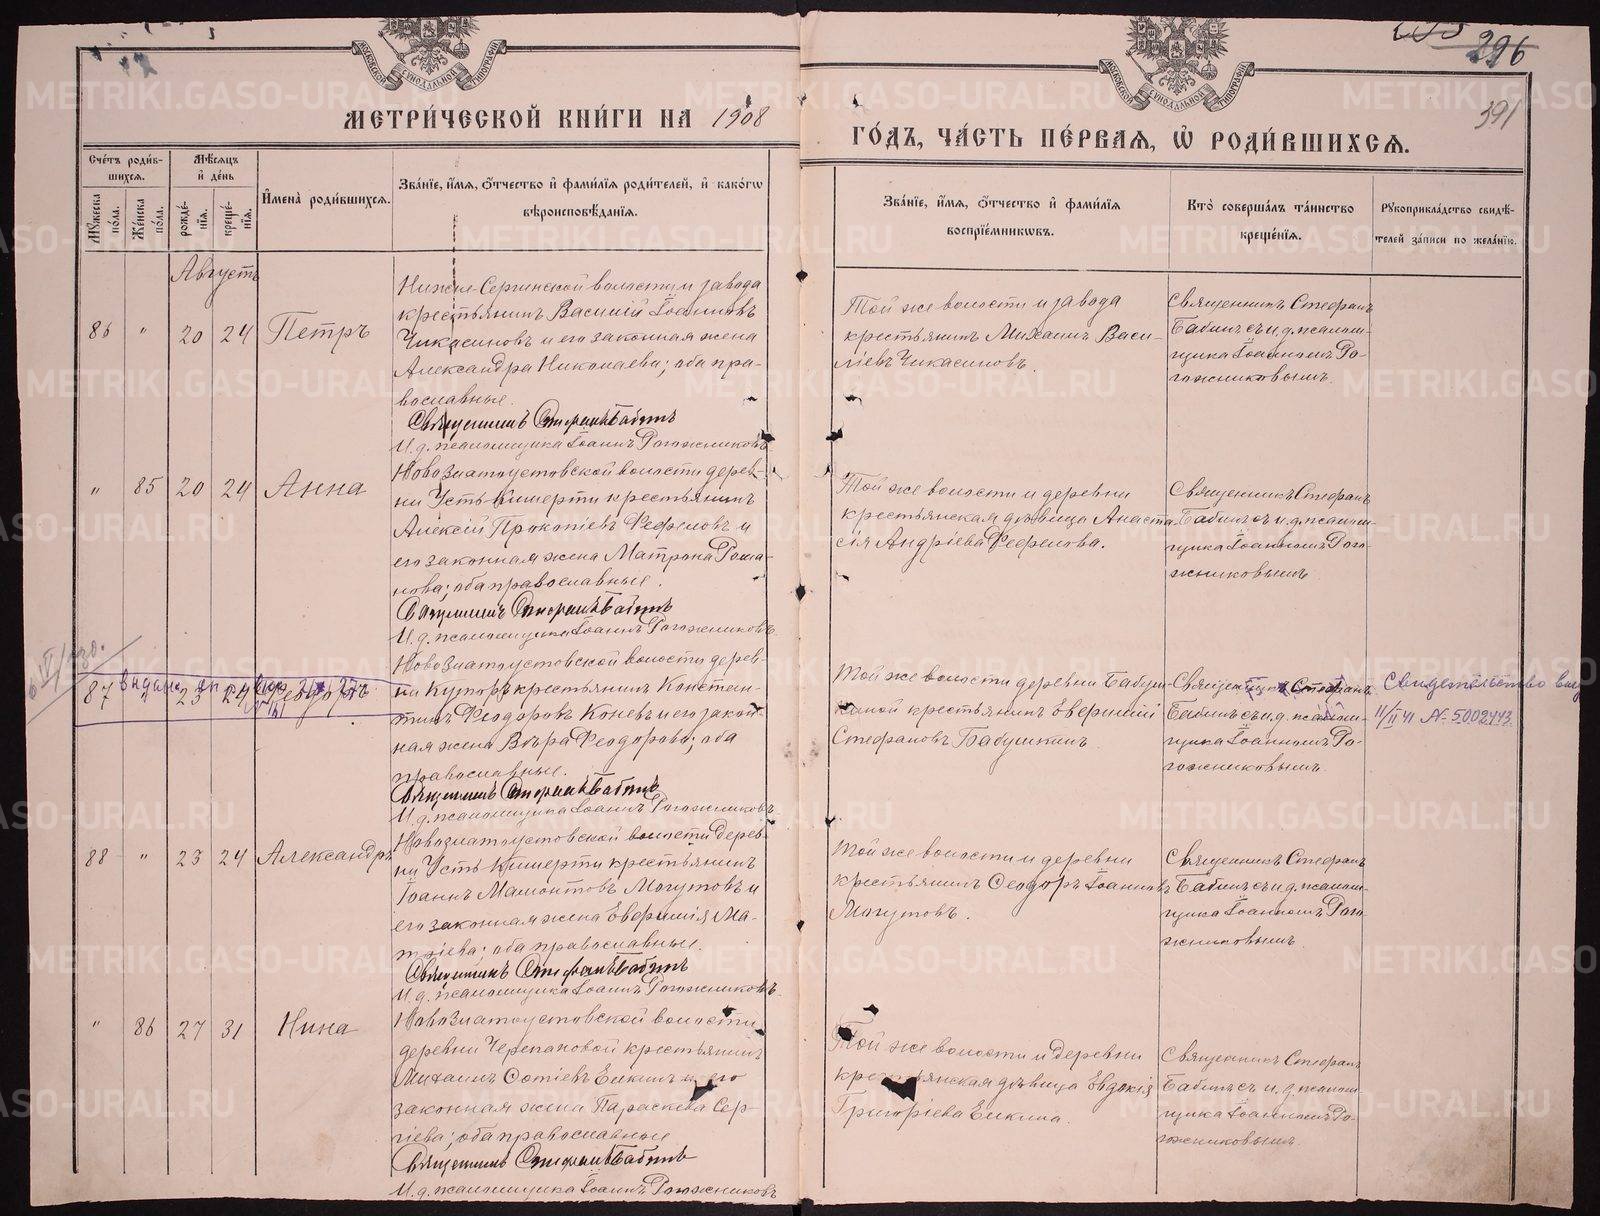 296
391
МОСКОВСКОЙ СѴНОДАЛЬНОЙ ТИПОГРАФІИ
МОСКОВСКОЙ СѴНОДАЛЬНОЙ ТИПОГРАФІИ
МЕТРИ́ЧЕСКОЙ КНИ́ГИ НА 1908
ГО́ДЪ, ЧА́СТЬ ПЕ́РВАЯ, Ѡ҆ РОДИ́ВШИХСЯ.
Сче́тъ роди́в-
шихся.
Мꙋ́жеска по́ла.
Же́нска по́ла.
Мѣ́сяцъ
и҆ де́нь
рожде́-
нїя.
креще́-
нїя.
И҆мена̀ роди́вшихся.
Зва́нїе, и҆́мя, ѻ҆́тчество и҆ фами́лїя роди́телей, и҆ како́гѡ
вѣроисповѣ́данїя.
Зва́нїе, и҆́мя, ѻ҆́тчество и҆ фами́лїя
воспрїе́мникѡвъ.
Кто̀ соверша́лъ та́инство
креще́нїя.
Рꙋкоприкла́дство свидѣ́-
телей за́писи по жела́нїю.
Августъ
86 " 20 24 Петръ
Нижне-Сергинской волости и завода
крестьянинъ Василій Іоанновъ
Чикасиновъ и его законная жена
Александра Николаева; оба пра-
вославные.
Священникъ Стефанъ Бабинъ
И.д. псаломщика Іоаннъ Рогожниковъ
Той же волости и завода
крестьянинъ Михаилъ Васи-
ліевъ Чикасиновъ.
Священникъ Стефанъ
Бабинъ съ и.д. псалом-
щика Іоанномъ Ро-
гожниковымъ.
" 85 20 24 Анна
Новозлатоустовской волости дерев-
ни Усть-Кишерти крестьянинъ
Алексій Прокопіевъ Фефеловъ и
его законная жена Матрона Рома-
нова; оба православные.
Священникъ Стефанъ Бабинъ
И.д. псаломщика Іоаннъ Рогожниковъ
Той же волости и деревни
крестьянская дѣвица Анаста-
сія Андріева Фефелова.
Священникъ Стефанъ
Бабинъ съ и.д. псалом-
щика Іоанномъ Рого-
жниковымъ
87 " 23 24 Ѳеодоръ
Новозлатоустовской волости дерев-
ни крестьянинъ Констан-
тинъ Ѳеодоровъ Коневъ и его закон-
ная жена Вѣра Ѳеодорова; оба
православные.
Священникъ Стефанъ Бабинъ
И.д. псаломщика Іоаннъ Рогожниковъ
Той же волости деревни
крестьянинъ Евфимій
Стефановъ Бабушкинъ.
Священникъ Стефанъ
Бабинъ съ и.д. псалом-
щика Іоанномъ Ро-
гожниковымъ.
Свидетельство выд
11/II 41 № 5002443
88 " 23 24 Александръ
Новозлатоустовской волости дерев-
ни Усть-Кишерти крестьянинъ
Іоаннъ Мамонтовъ Могутовъ и
его законная жена Евфимія Ма-
; оба православные.
Священникъ Стефанъ Бабинъ
И.д. псаломщика Іоаннъ Рогожниковъ.
Той же волости и деревни
крестьянинъ Ѳеодоръ Іоанновъ
Могутовъ.
Священникъ Стефанъ
Бабинъ съ и.д. псалом-
щика Іоанномъ Рого-
жниковымъ.
" 86 27 31 Нина
Новозлатоустовской волости
деревни Черепановой крестьянинъ
Михаилъ Елкинъ и его
законная жена Параскева Сер-
гіева; оба православные
Священникъ Стефанъ Бабинъ
И.д. псаломщика Іоаннъ Рогожниковъ
Той же волости и деревни
крестьянская дѣвица Евдокія
Григоріева Елкина.
Священникъ Стефанъ
Бабинъ съ и.д. псалом-
щика Іоанномъ Ро-
гожниковымъ.
METRIKI.GASO-URAL.RU